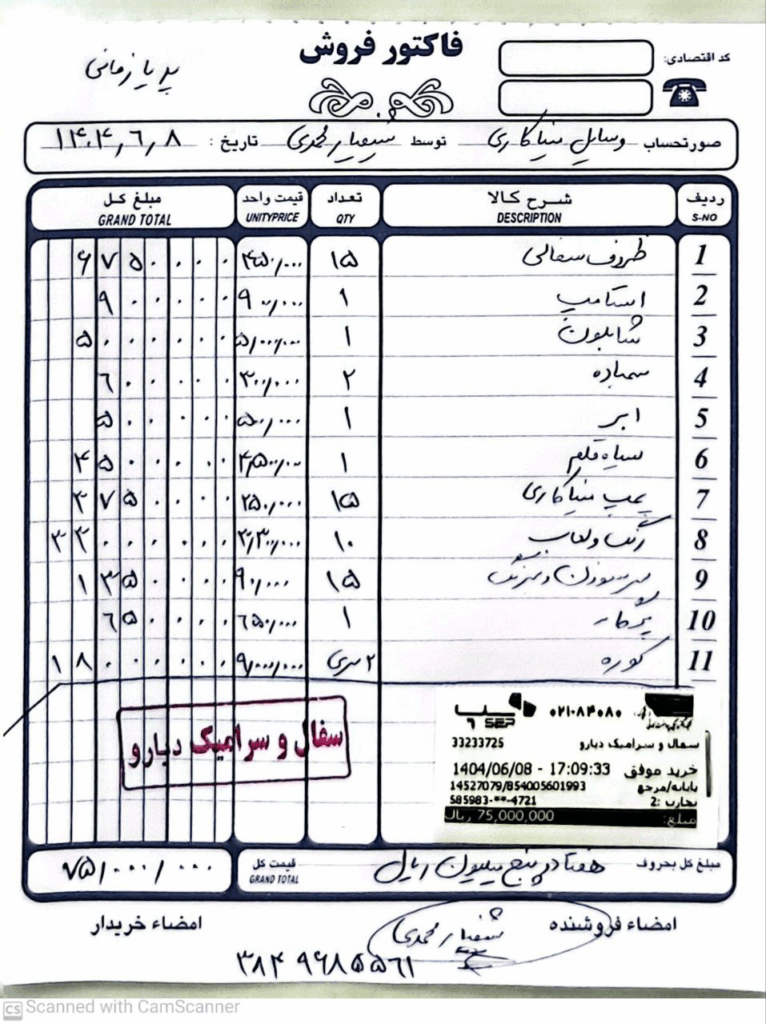 فاکتور فروش
کد اقتصادی:
صورتحساب وسایل میناکاری توسط محمدی تاریخ: ۱۴۰۴٫۶٫۸
ردیف S-NO شرح کالا DESCRIPTION تعداد QTY قیمت واحد UNITYPRICE مبلغ کل GRAND TOTAL
1 ظروف سفالی ۱۵ ۴۵۰٫۰۰۰ ۶۷۵۰۰۰۰
2 استامپ ۱ ۹۰۰٫۰۰۰ ۹۰۰۰۰۰
3 شابلون ۱ ۵٫۰۰۰٫۰۰۰ ۵۰۰۰۰۰۰
4 سمباده ۲ ۳۰۰٫۰۰۰ ۶۰۰۰۰۰
5 ابر ۱ ۵۰۰٫۰۰۰ ۵۰۰۰۰۰
6 سیاه قلم ۱ ۴٫۵۰۰٫۰۰۰ ۴۵۰۰۰۰۰
7 پمپ میناکاری ۱۵ ۲۵۰٫۰۰۰ ۳۷۵۰۰۰۰
8 رنگ و لعاب ۱۰ ۳٫۳۰۰٫۰۰۰ ۳۳۰۰۰۰۰۰
9 سرسوزن و سرنگ ۱۵ ۹۰٫۰۰۰ ۱۳۵۰۰۰۰
10 پرگار ۱ ۶۵۰٫۰۰۰ ۶۵۰۰۰۰
11 کوره ۲ سری ۹٫۰۰۰٫۰۰۰ ۱۸۰۰۰۰۰۰
سفال و سرامیک دبارو
سپ SEP ۰۲۱-۸۴۰۸۰
33233725 سفال و سرامیک دبارو
خرید موفق 17:09:33 - 1404/06/08
پایانه/مرجع 14527079/854005601993
تجارت: 2 585983-**-4721
مبلغ: 75,000,000 ریال
مبلغ کل بحروف هفتاد و پنج میلیون ریال قیمت کل GRAND TOTAL ۷۵٫۰۰۰٫۰۰۰
امضاء فروشنده محمدی امضاء خریدار
۳۸۴ ۹۶۸۵۵۶۱
CS Scanned with CamScanner